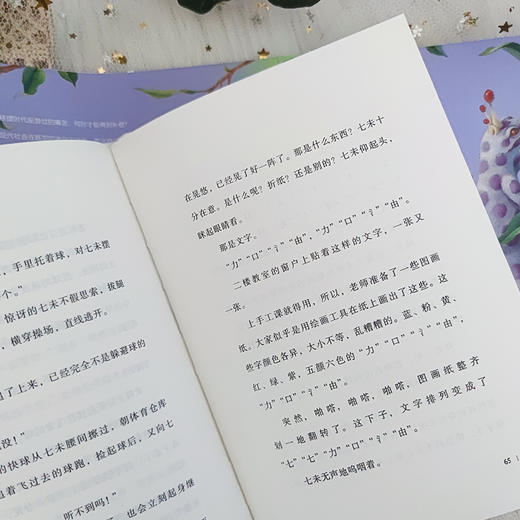 手里托着球，对七未摆
个。”
惊讶的七未不假思索，拔腿
，横穿操场，直线逃开。
了上来，已经完全不是躲避球的
没！”
的快球从七未腰间擦过，朝体育仓库
着飞过去的球跑，捡起球后，又向七
听不到吗！”
，也会立刻起身继
在晃悠，已经晃了好一阵了。那是什么东西？七未十
分在意。是什么呢？折纸？还是别的？七未仰起头，
眯起眼睛看。
那是文字。
“力”“口”“氵”“由”，“力”“口”“氵”“由”。
二楼教室的窗户上贴着这样的文字，一张又
一张。
上手工课就得用，所以，老师准备了一些图画
纸。大家似乎是用绘画工具在纸上画出了这些。这
些字颜色各异，大小不等，乱糟糟的。蓝、粉、黄、
红、绿、紫，五颜六色的“力”“口”“氵”“由”，
“力”“口”“氵”“由”。
突然，啪嗒，啪嗒，啪嗒，图画纸整齐
划一地翻转了。这下子，文字排列变成了
“七”“七”“力”“口”“氵”“由”。
七未无声地呜咽着。
65